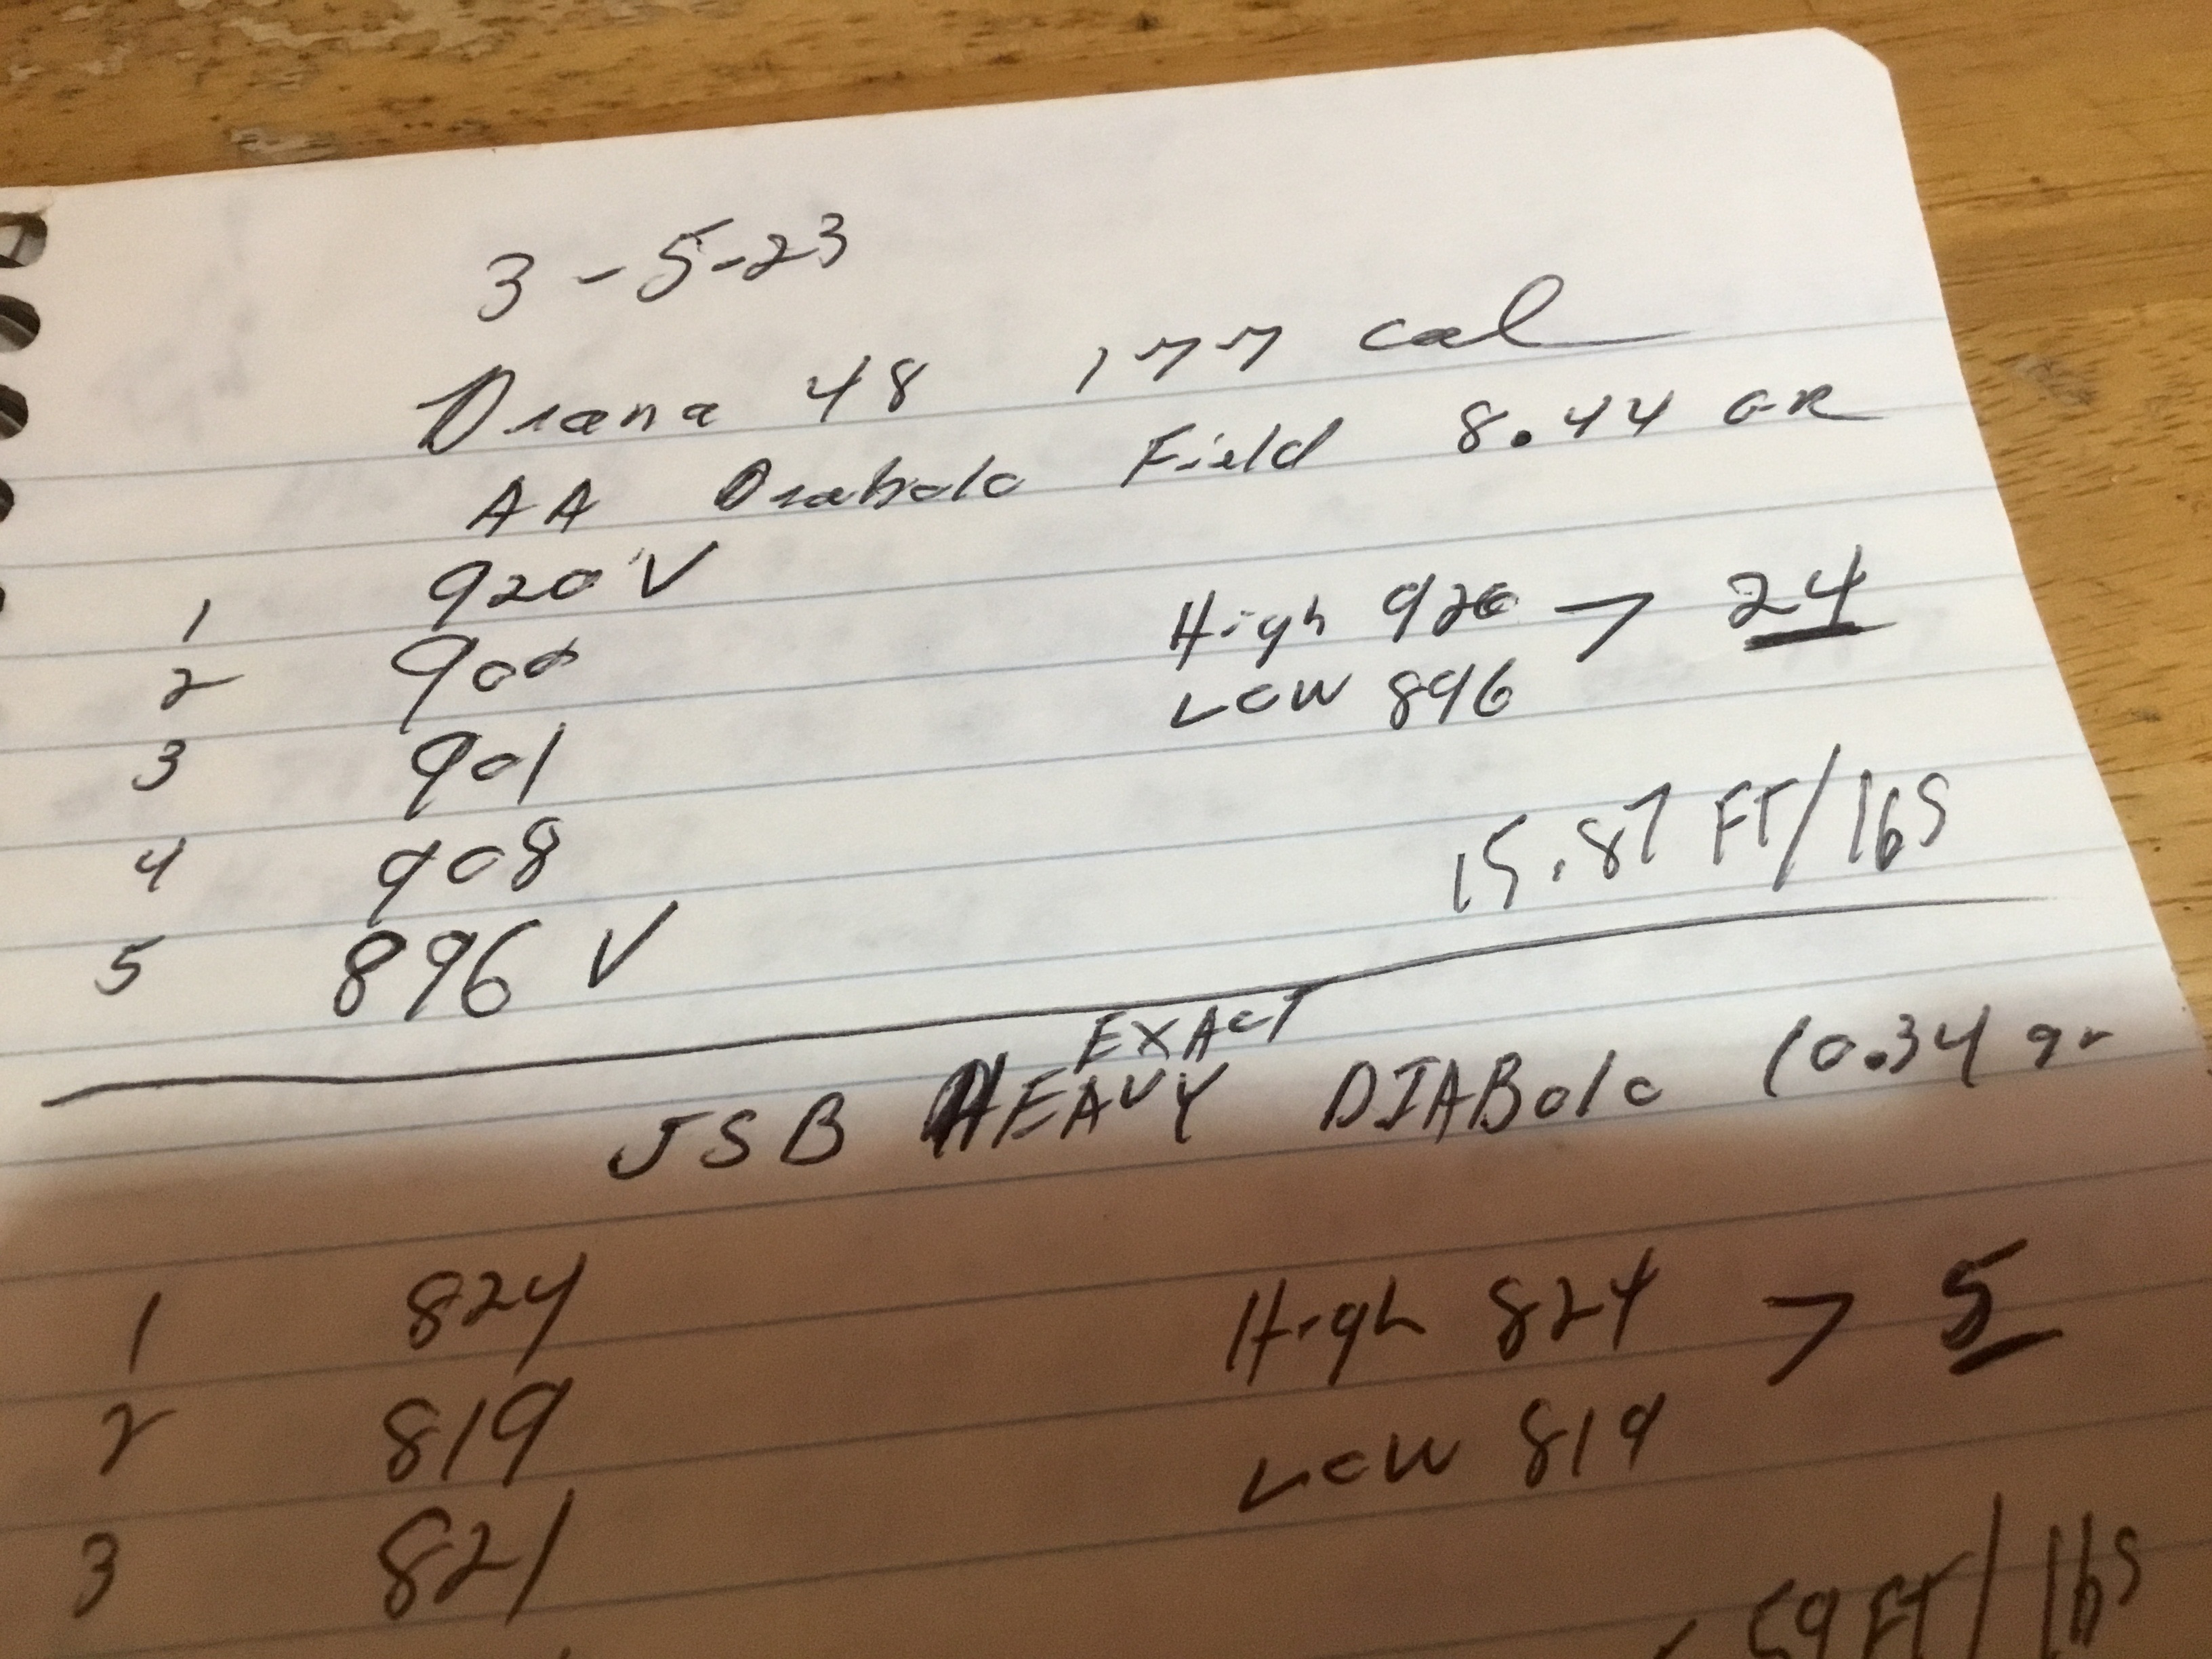 3-5-23
Diana 48 177 cal
AA Diabolo Field 8.44 GR
1 920 V
2 900
High 920 > 24
3 901
Low 896
4 908
15.87 FT/lbs
5 896 V
EXAcT
JSB HEAVY DIABolo 10.34 gr
1 824
High 824 > 5
2 819
Low 819
3 821
59 FT/lbs